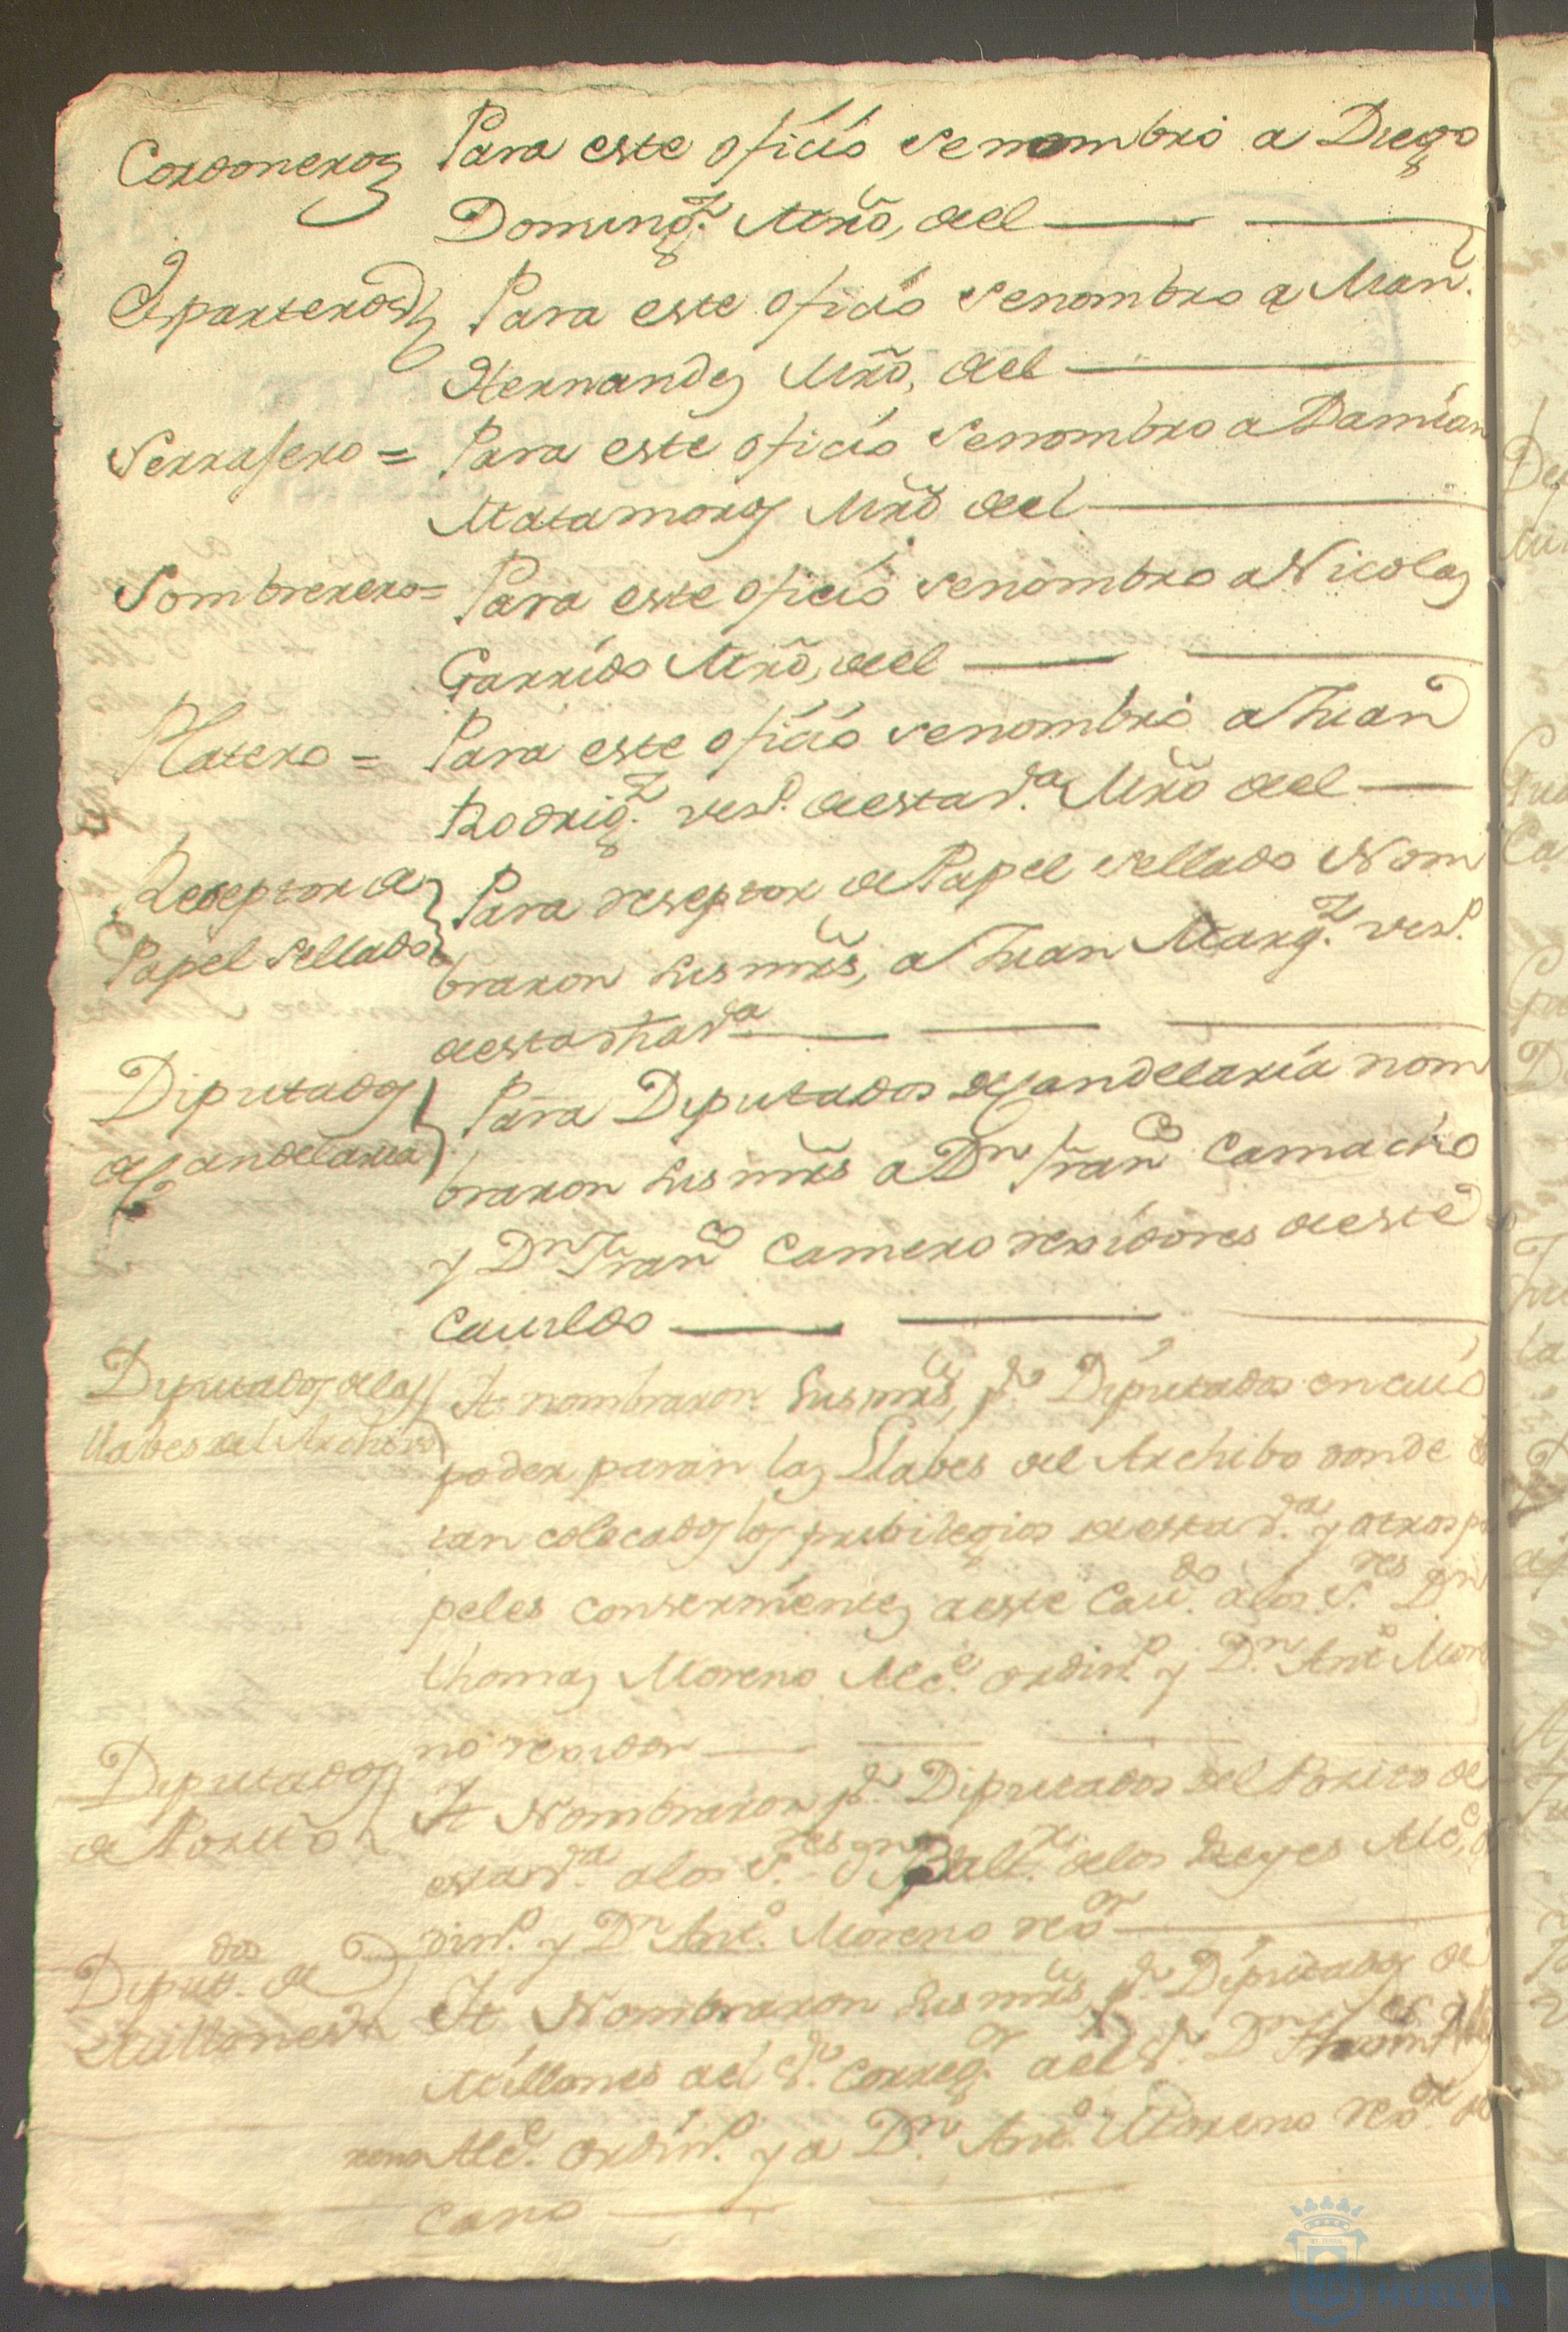 Cordoneros Para este oficio se nombro a Diego
Doming.z Mro, del
Esparteros Para este oficio se nombro a Man.l
Hernandes Mro, del
Serrasero = Para este oficio se nombro a Damian
Matamoros Mro del
Sombrerero = Para este oficio se nombro a Nicolas
Garrido Mro, del
Platero = Para este oficio se nombro a Juan
Rodrig.z veso. de esta v.a Mro del
Reseptor de Para reseptor de Papel sellado Nom
Papel sellado braron sus mrs, a Juan Marq.z veso.
de esta dha v.a
Diputados Para Diputados de Candelaria nom
de Candelaria braron sus mrs a Dn Fran.co Camacho
y Dn Fran.co Camero rexidores de este
Cauildo
Diputados de las It nombraron sus mrs, p.r Diputados en cuio
llabes del Archivo poder paran las Llabes del Archibo donde es
tan colocados los prebilegios de esta v.a y otros pa
peles conserniente, a este Cau.do a los S.res Dn
thomas Moreno Alc.e ordin.o y D.n Ant.o More
no rexidor
Diputados It Nombraron p.r Diputados del Posito de
de Posito esta v.a a los S.res Dn Balt.r de los Reyes Alc.e or
din.o y Dn Ant.o Moreno reg.or
Diput.dos de It Nombraron sus mrs, p.r Diputados de
Millones Millones al S.r Correg.or al S.r Dn thom.s Mo
reno Alc.e ordin.o y a D.n Ant.o Moreno reg.or de
cano
HUELVA